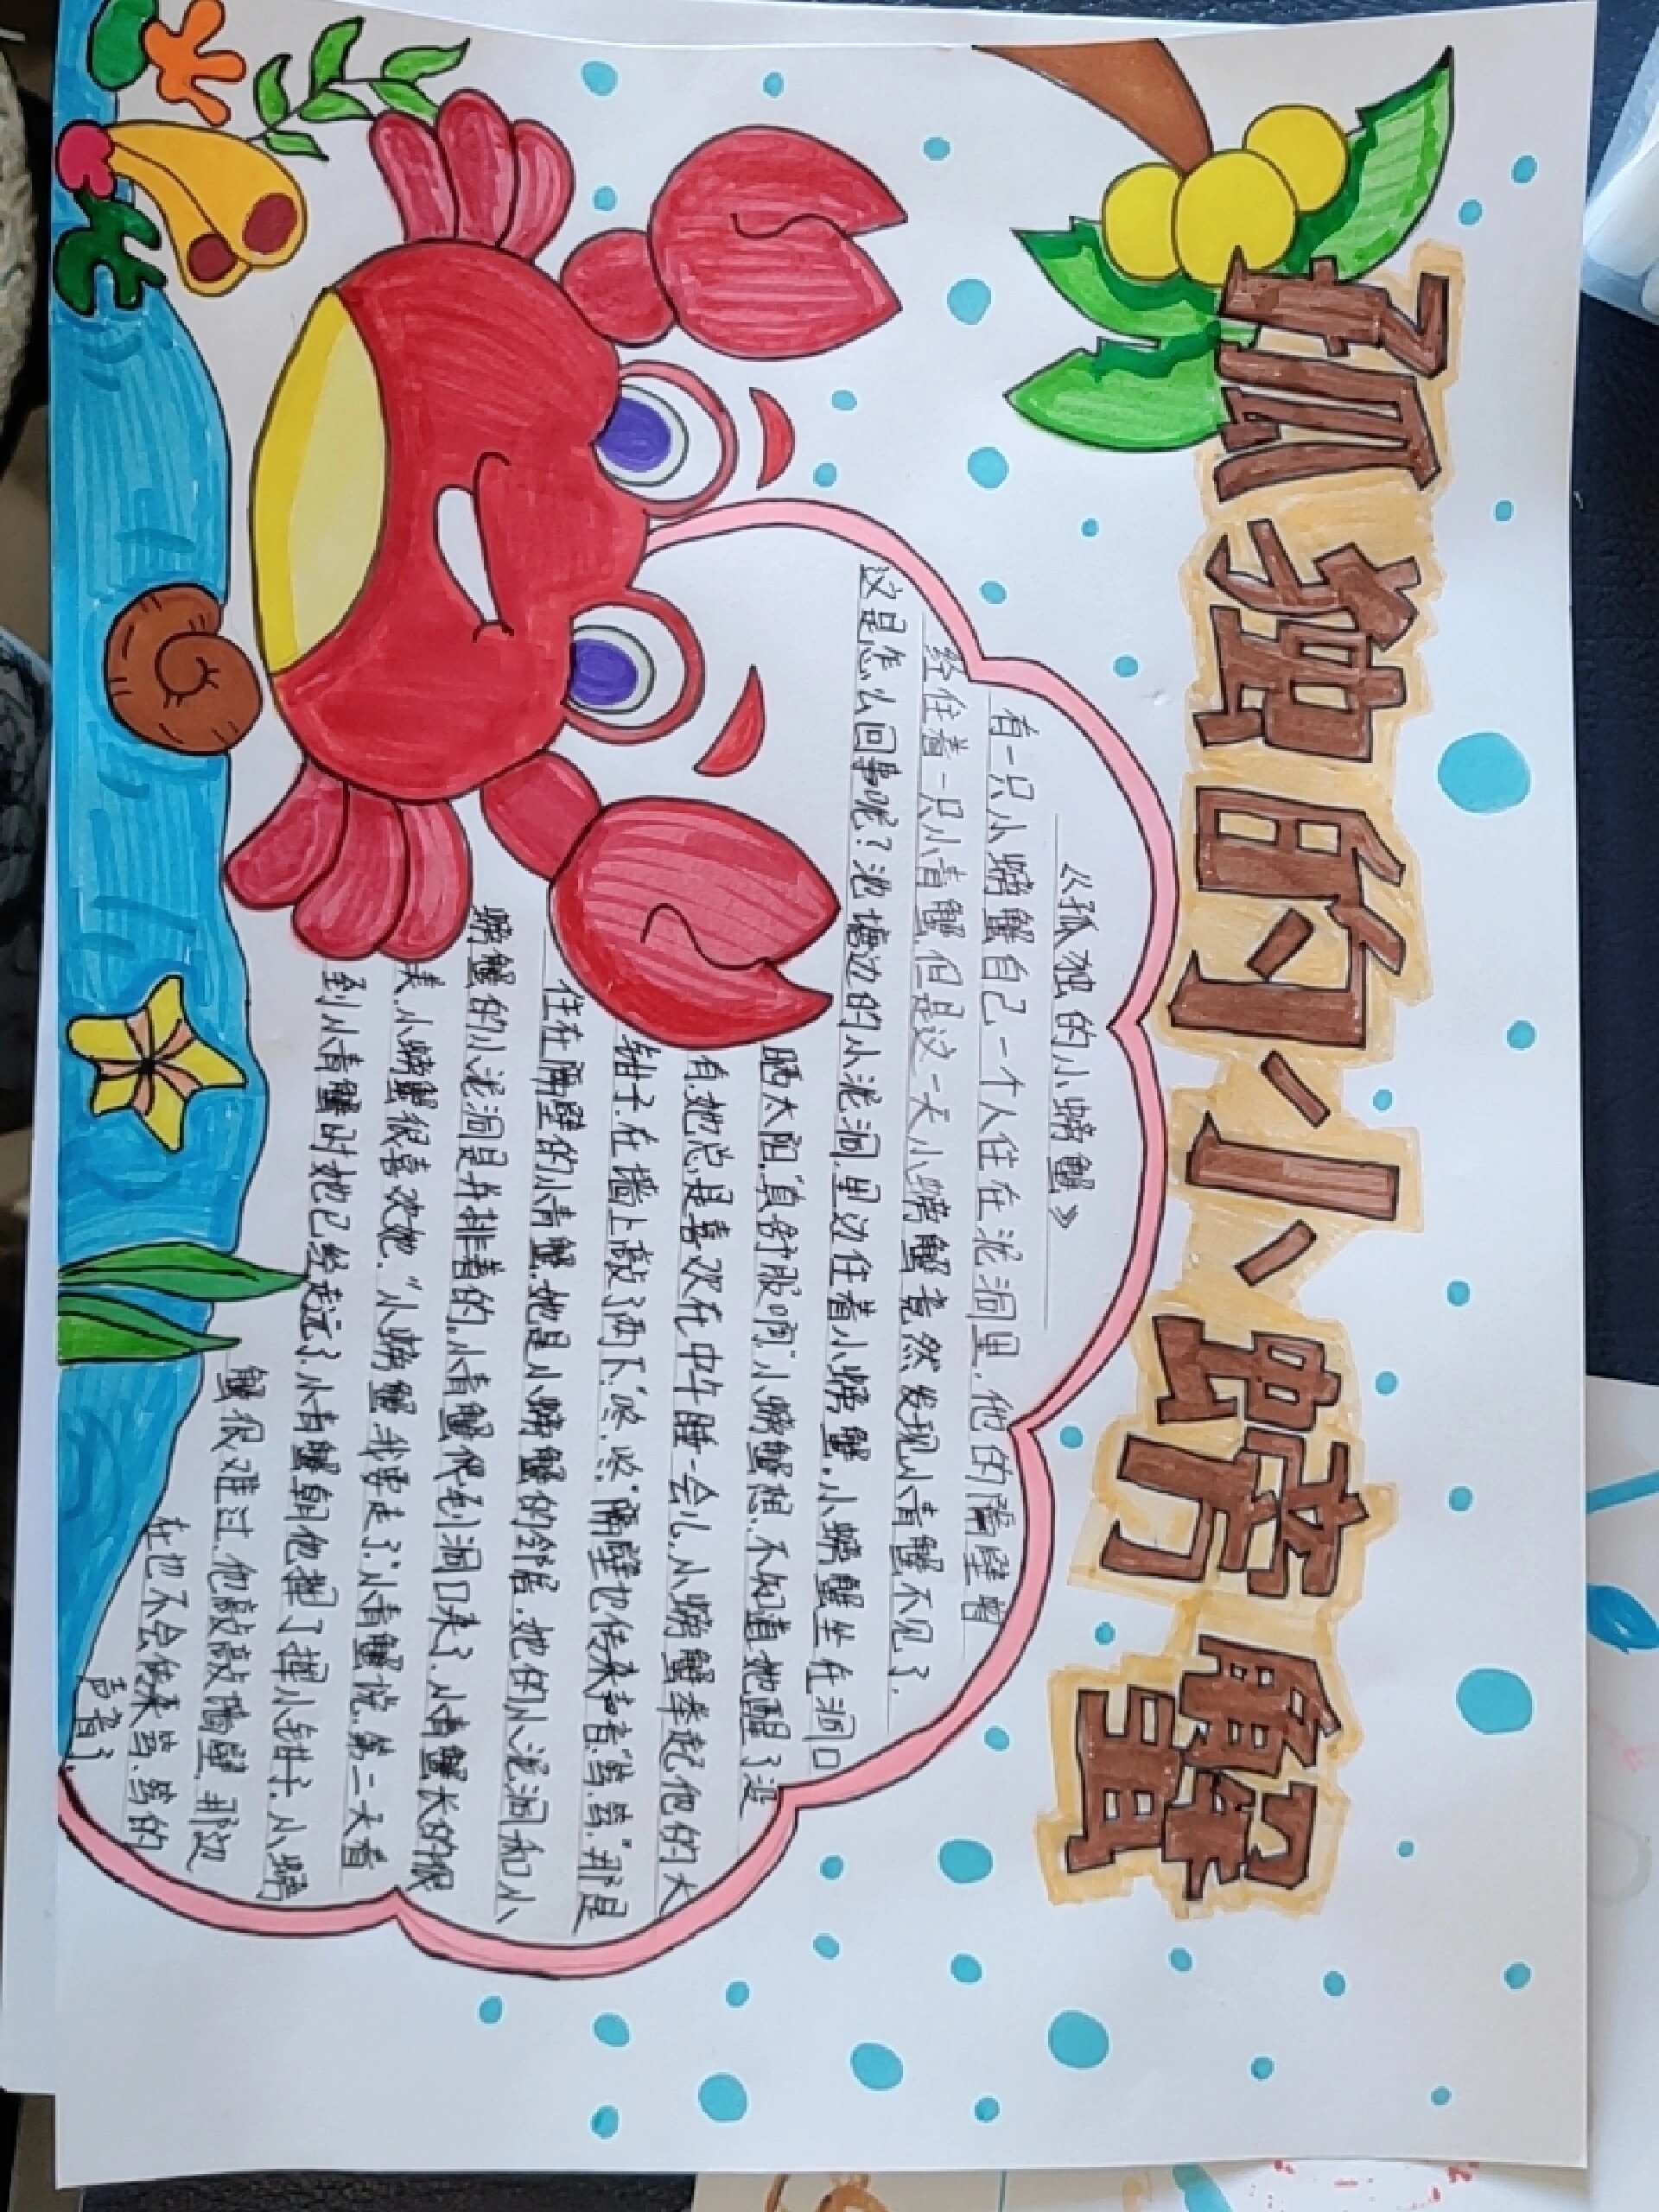 孤独的小螃蟹
《孤独的小螃蟹》
有一只小螃蟹自己一个人住在泥洞里.他的隔壁曾
经住着一只小青蟹.但是这一天小螃蟹竟然发现小青蟹不见了.
这是怎么回事呢?池塘边的小泥洞里边住着小螃蟹.小螃蟹坐在洞口
晒太阳."真舒服啊"小螃蟹想.不知道她醒了没
有.她总是喜欢在中午睡一会儿.小螃蟹举起他的大
钳子.在墙上敲了两下."咚.咚."隔壁也传来声音."笃.笃."那是
住在隔壁的小青蟹.她是小螃蟹的邻居.她的小泥洞和小
螃蟹的小泥洞是并排着的.小青蟹爬到洞口来了.小青蟹长的很
美.小螃蟹很喜欢她."小螃蟹.我要走了."小青蟹说.第二天看
到小青蟹时她已经走远了.小青蟹朝他挥了挥小钳子.小螃
蟹很难过.他敲敲隔壁.那边
在也不会传来笃.笃的
声音了.